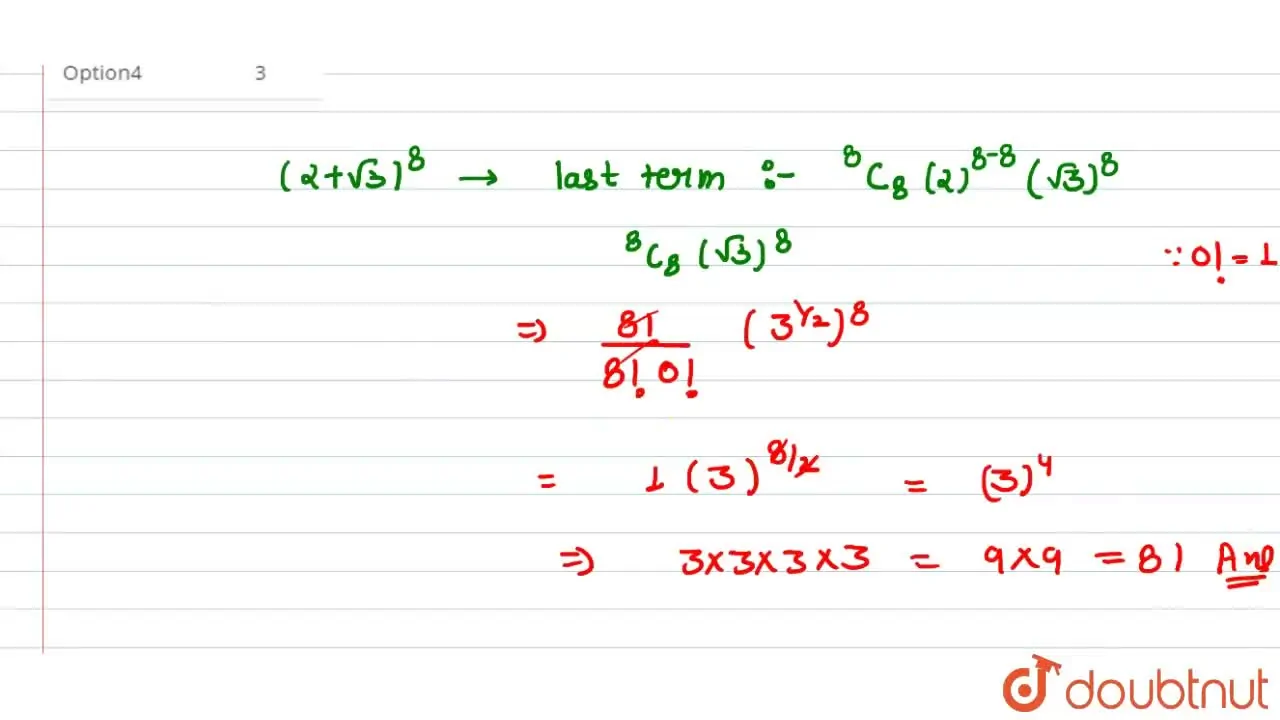 Option4 3
(2+√3)⁸ → last term :- ⁸C₈ (2)⁸⁻⁸ (√3)⁸
⁸C₈ (√3)⁸
∵ 0! = 1
=> 8!/8! 0! (3^1/2)⁸
= 1 (3)^8/2 = (3)⁴
=> 3×3×3×3 = 9×9 = 81 Ans
doubtnut